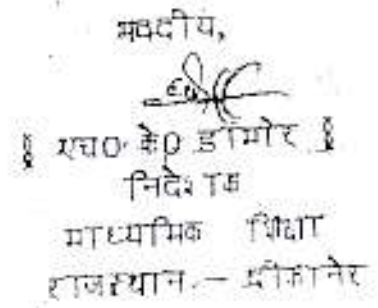 भवदीय,
[ एच0 के0 डामोर ]
निदेशक
माध्यमिक शिक्षा
राजस्थान - बीकानेर